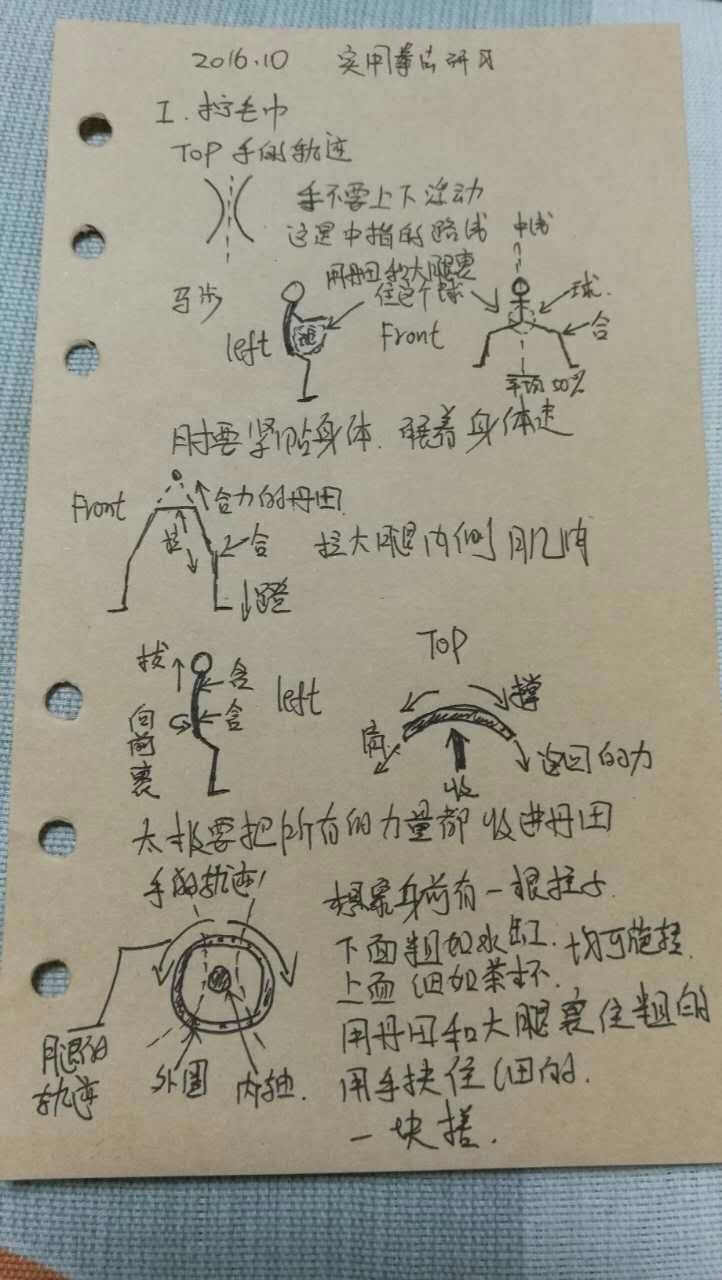 2016.10 实用拳法研习
I. 拧毛巾
TOP 手的轨迹
手不要上下浮动
这是中指的路线
中线
用丹田和大腿裹
住这个球
马步
left
球
Front
球.
合
平均 50%
肘要紧贴身体.
着身体走
Front
合力的丹田
拉
合
拉大腿内侧肌肉
↓蹬
拔
含
Top
向前裹
含
left
撑
肩
返回的力
收
太极要把所有的力量都收进丹田
手的轨迹
想象身前有一根柱子.
下面粗如水缸.
均可旋转.
上面细如茶杯.
用丹田和大腿裹住粗的
腿的
轨迹
外圈
内轴.
用手扶住细的.
一块搓.